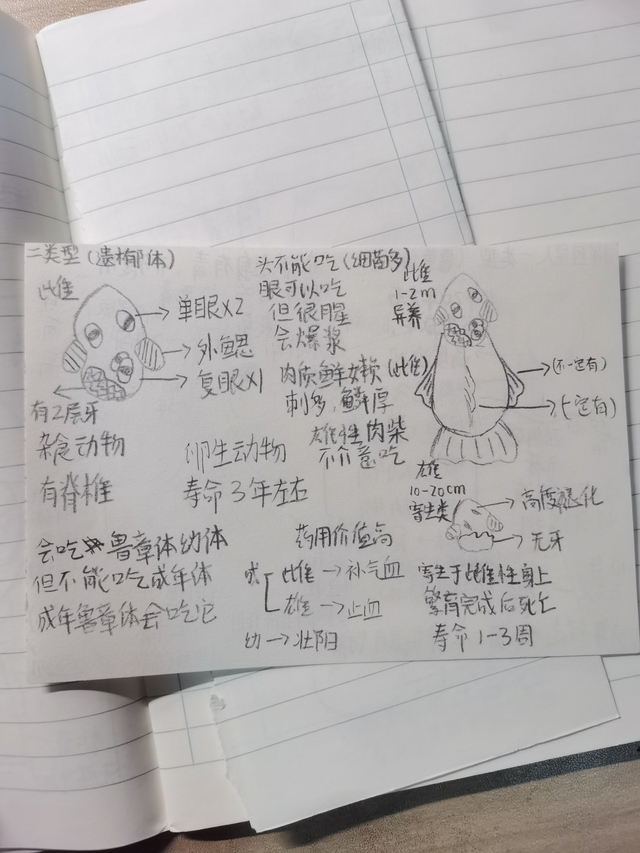 二类型（遗梆郁体）
雌
单眼X2
外鳃
复眼X1
有2层牙
杂食动物
有脊椎
卵生动物
寿命3年左右
头不能吃（细菌多）
眼可以吃
但很腥
会爆浆
肉质鲜嫩（雌）
刺多，鳞厚
雄性肉柴
不介意吃
雌
1-2m
异养
（不一定有）
（一定有）
雄
10-20cm
寄生类
高度退化
无牙
寄生于雌性身上
繁育完成后死亡
寿命1-3周
会吃鲁章体幼体
但不能吃成年体
成年鲁章体会吃它
药用价值高
成
雌→补气血
雄→止血
幼→壮阳